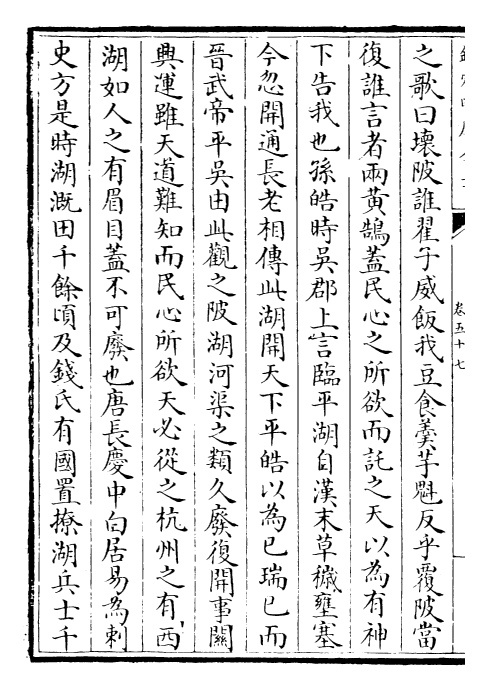 之歌曰壊陂誰翟子威飯我豆食羮芋魁反乎覆陂當
復誰言者兩黄鵠蓋民心之所欲而託之天以為有神
下告我也孫皓時吳郡上言臨平湖自漢末草穢壅塞
今忽開通長老相傳此湖開天下平皓以為已瑞已而
晉武帝平吳由此觀之陂湖河渠之類久廢復開事關
興運雖天道難知而民心所欲天必從之杭州之有西
湖如人之有眉目蓋不可廢也唐長慶中白居易為刺
史方是時湖溉田千餘頃及錢氏有國置撩湖兵士千
卷五十七